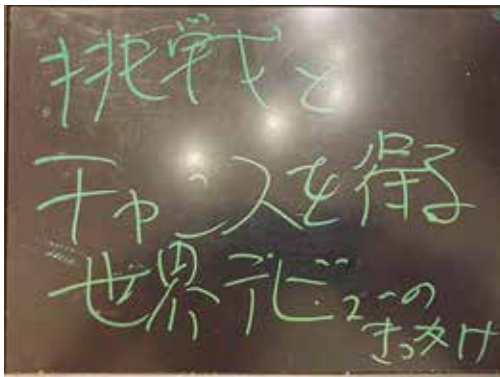 挑戦と
チャンスを得る
世界デビューの
きっかけ